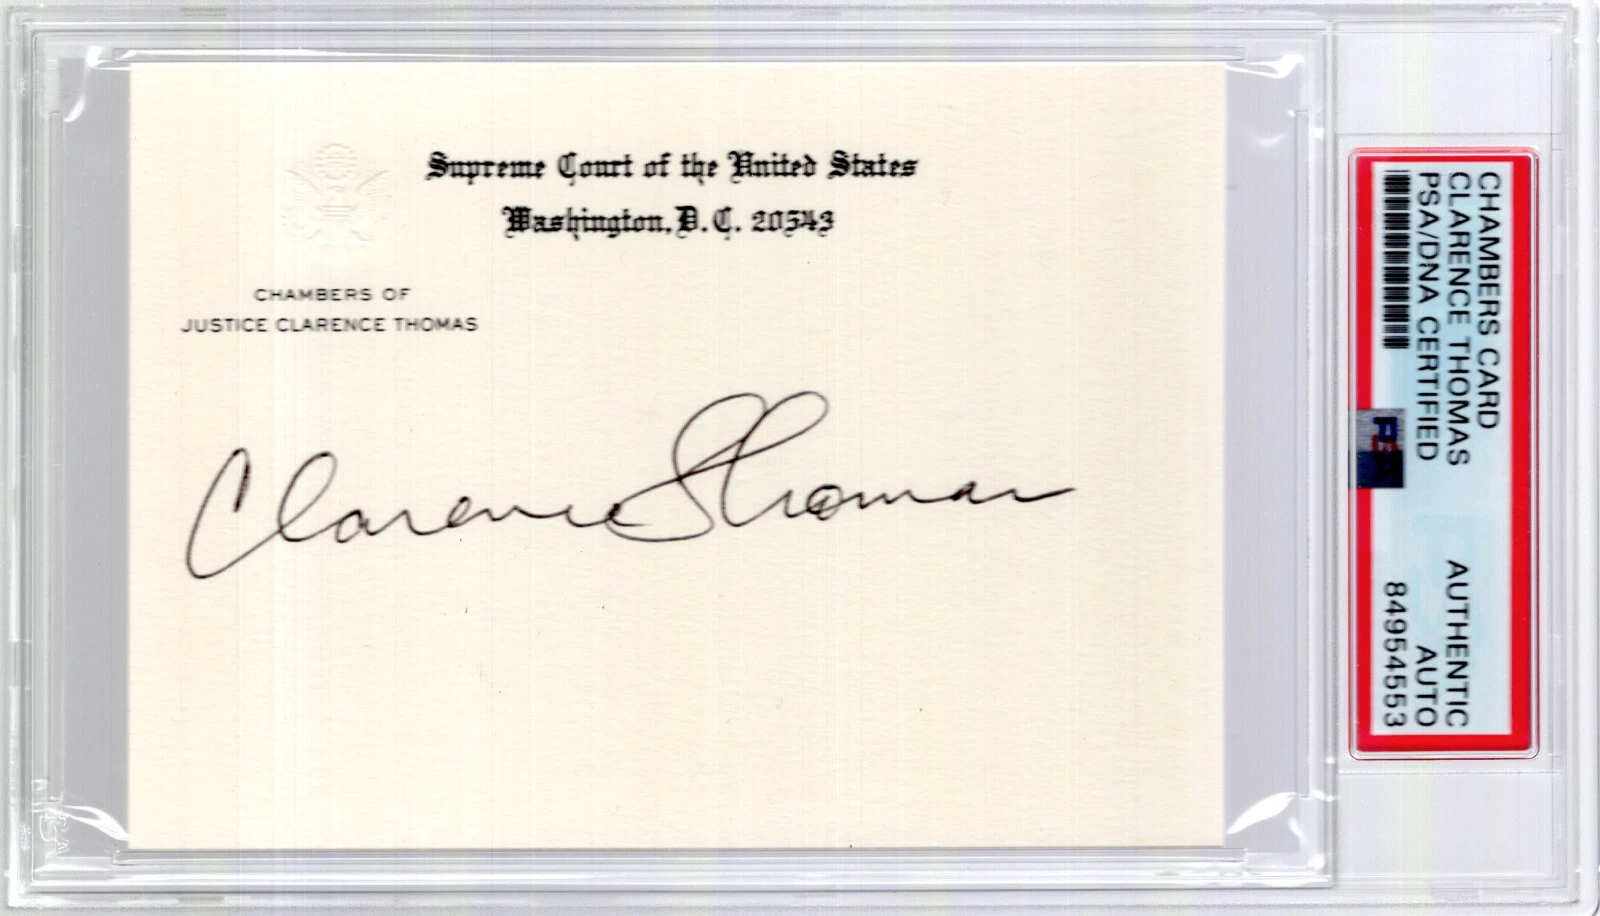 Supreme Court of the United States
Washington, D.C. 20543
CHAMBERS OF
JUSTICE CLARENCE THOMAS
Clarence Thomas
CHAMBERS CARD
CLARENCE THOMAS
PSA/DNA CERTIFIED
PSA
AUTHENTIC
AUTO
84954553